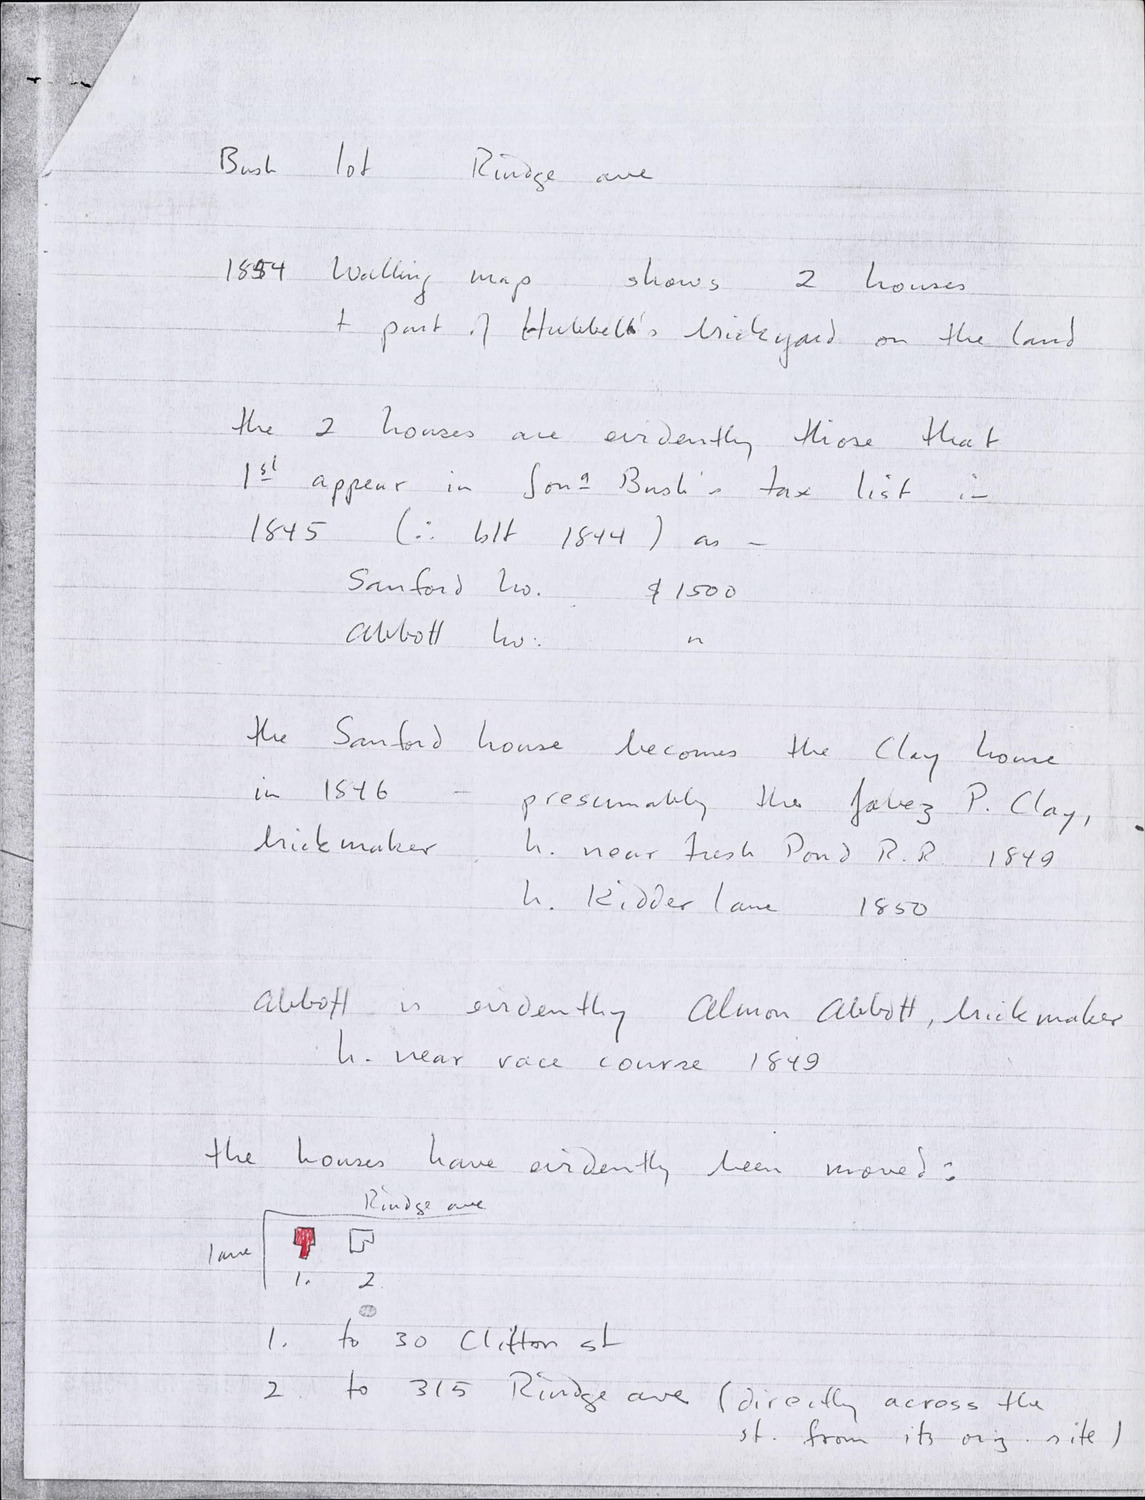 Bush lot Rindge ave
1854 Walling map shows 2 houses
+ part of Hubbell's brickyard on the land
the 2 houses are evidently those that
1st appear in Jona Bush's tax list in
1845 (∴ blt 1844) as –
Sanford ho. $1500
Abbott ho. "
the Sanford house becomes the Clay house
in 1846 – presumably the Jabez P. Clay,
brickmaker h. near Fresh Pond R.R 1849
h. Kidder lane 1850
Abbott is evidently Almon Abbott, brickmaker
h. near race course 1849
the houses have evidently been moved:
Rindge ave
lane
1. 2.
1. to 30 Clifton st
2. to 315 Rindge ave (directly across the
st. from its orig. site)